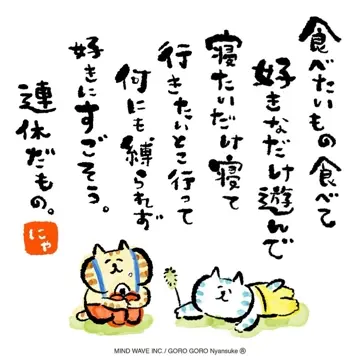 食べたいもの食べて
好きなだけ遊んで
寝たいだけ寝て
行きたいとこ行って
何にも縛られず
好きにすごそう。
連休だもの。
にゃ
MIND WAVE INC. / GORO GORO Nyansuke Ⓡ